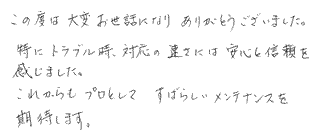 この度は大変お世話になり ありがとうございました。
特にトラブル時、対応の速さには安心と信頼を
感じました。
これからも プロとして すばらしいメンテナンスを
期待します。